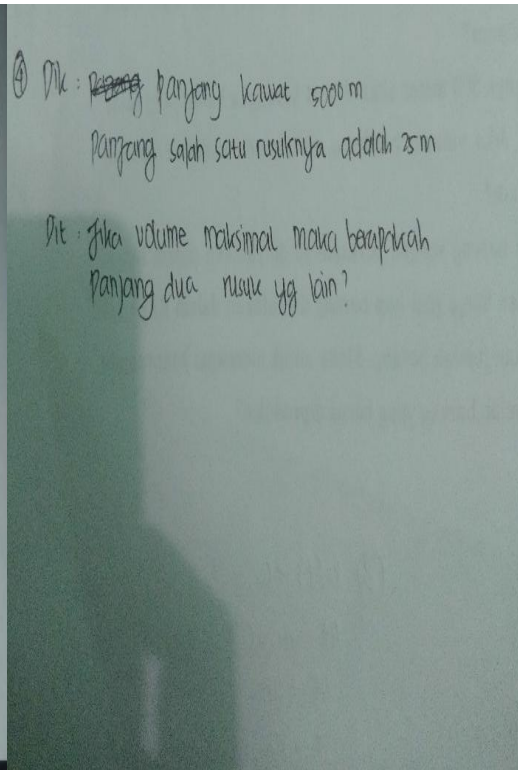 ④ Dik : panjang kawat 5000 m
panjang salah satu rusuknya adalah 25 m
Dit : Jika volume maksimal maka berapakah
panjang dua rusuk yg lain?